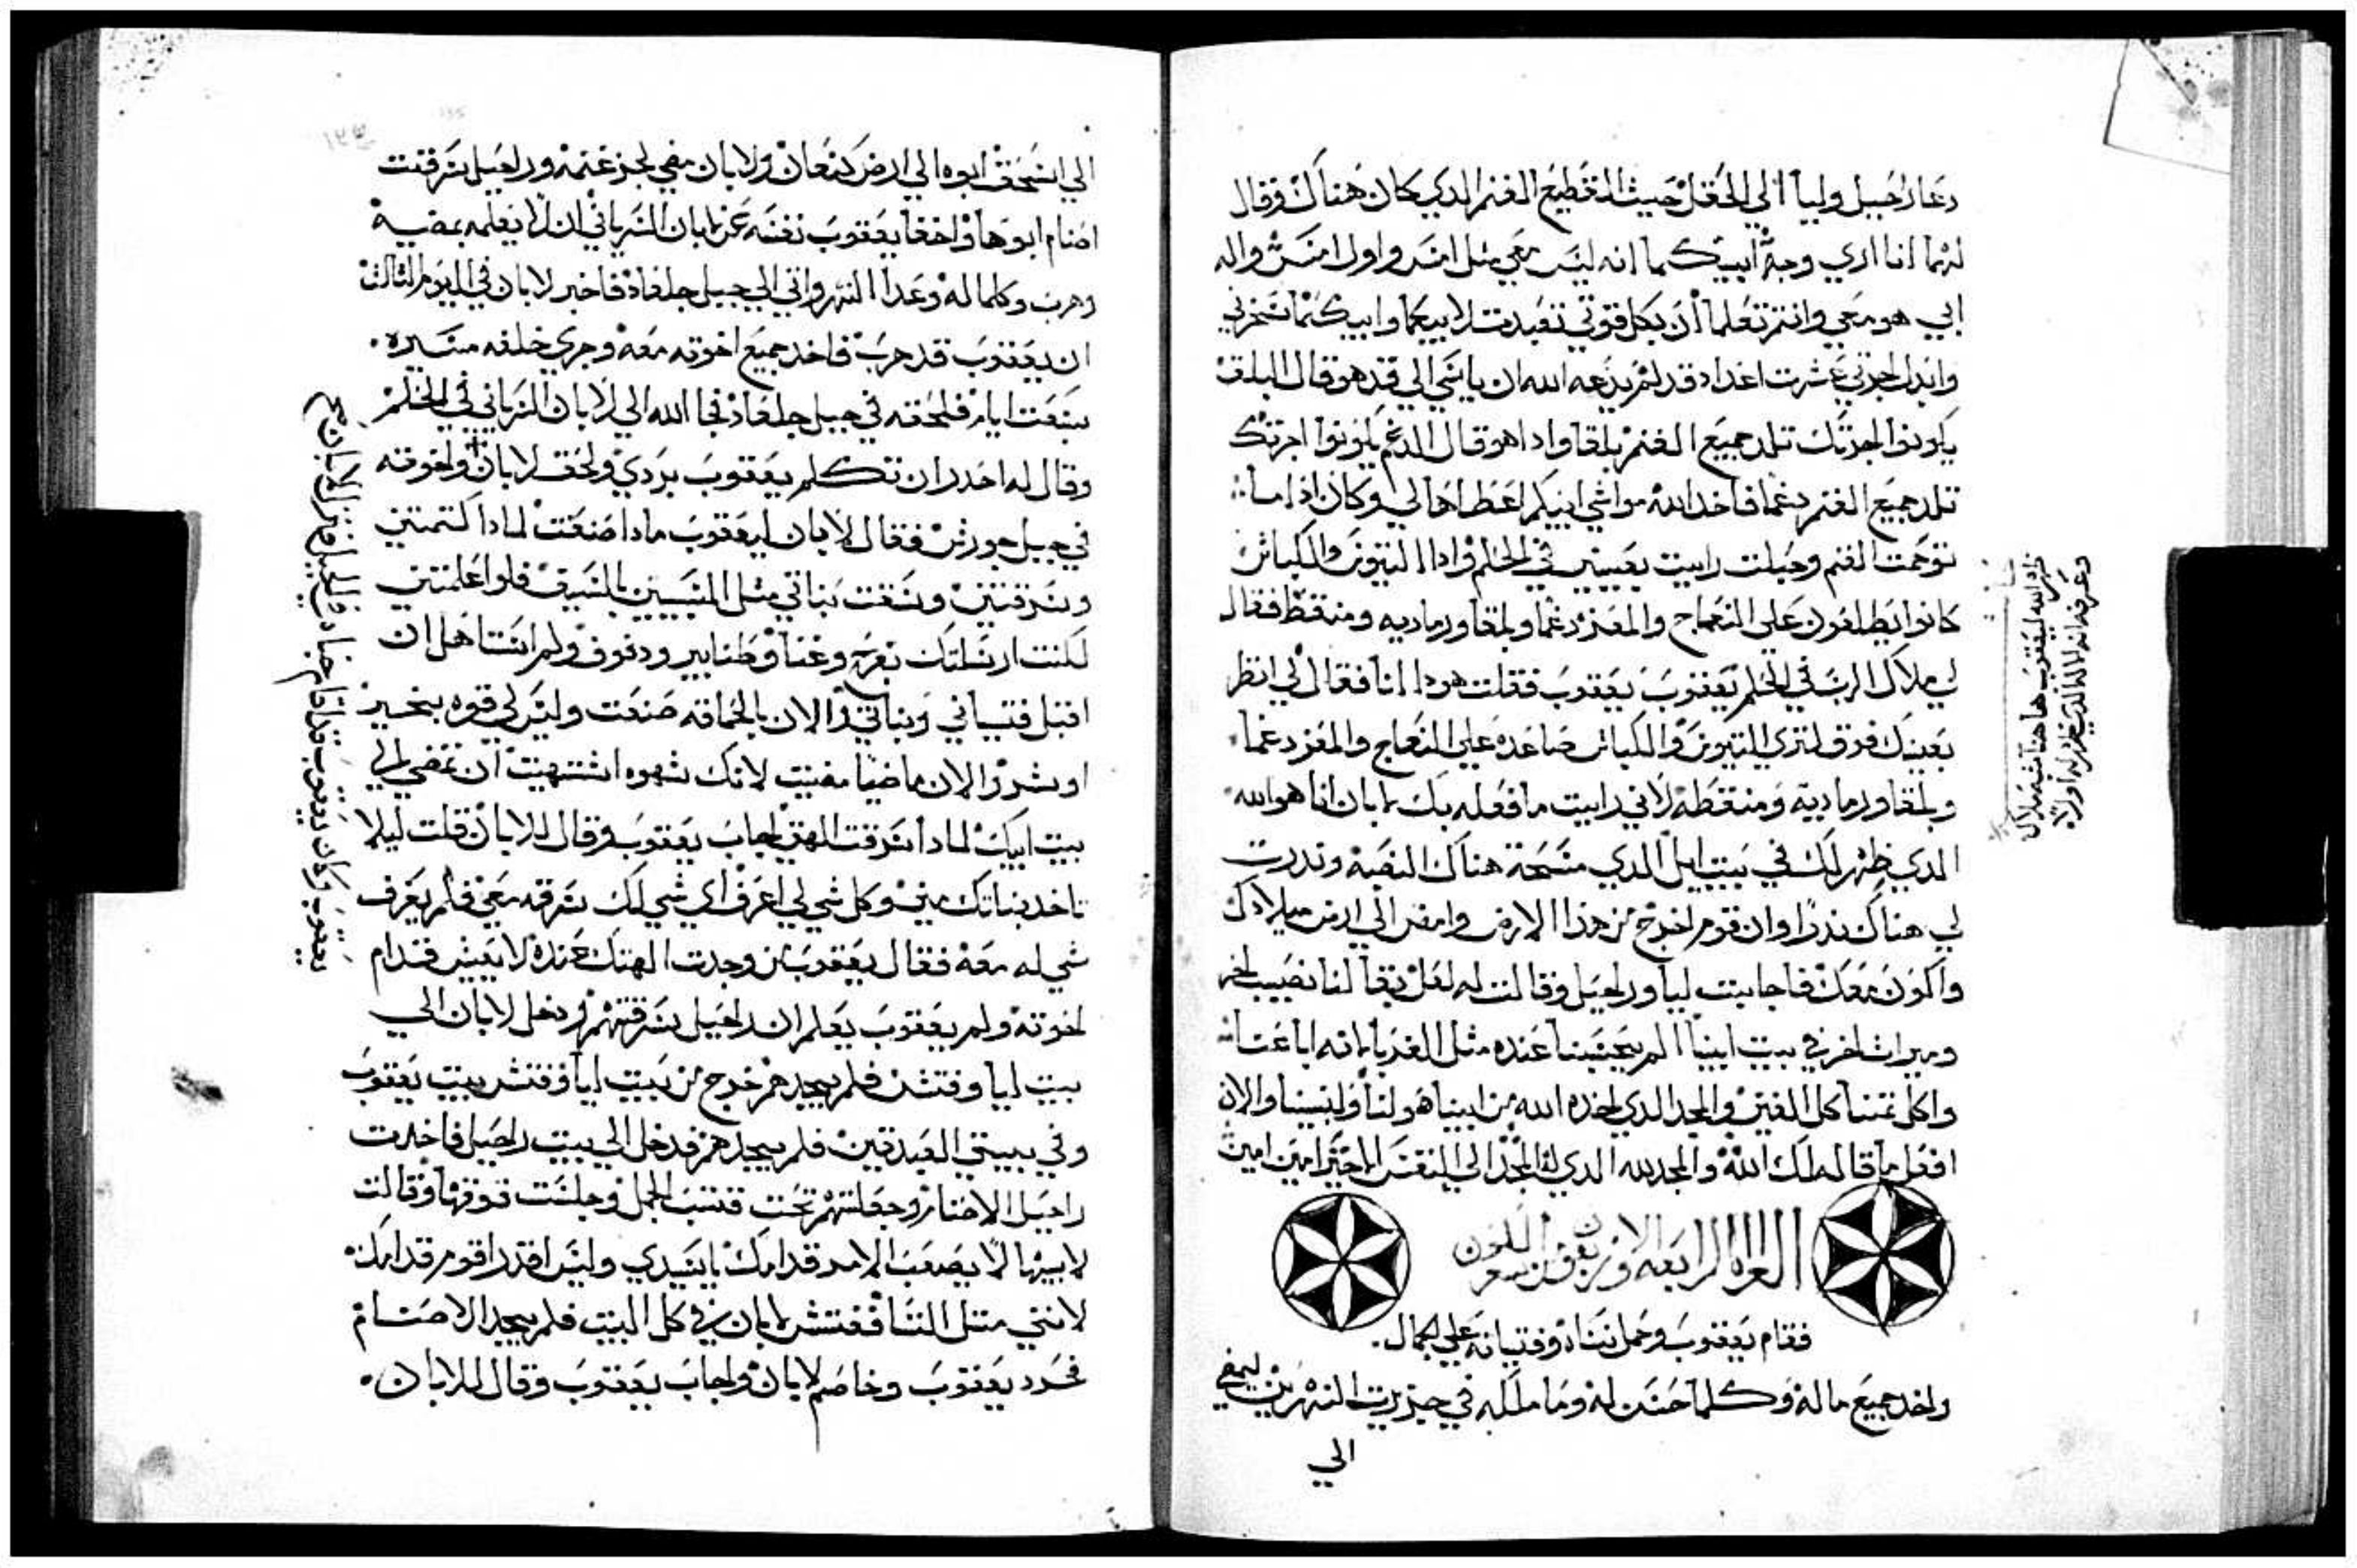 دعا راحيل وليا الي الحقل حيث القطيع الغنم الدي كان هناك وقال
لهما انا اري وجه ابيكما انه ليس معي مثل امس واول امس واله
ابي هو معي وانتم تعلما ان بكل قوتي تعبدت لابيكما وابيكما سخر بي
وابدل اجرتي عشرت اعداد قد لم يدعه الله ان ياسي الي قد هو قال البلق
يكونوا اجرتك تلد جميع الغنم بلقا وادا هو قال الدغم يكونوا اجرتك
تلد جميع الغنم دغما فاخد الله مواشي ابيكم اعطاها لي وكان ادا ما
توحمت الغنم وحبلت رايت بعيني في الحلم وادا التيوس والكباش
كانوا يطلعون علي النعاج والمعز دغما وبلقا ورماديه ومنقط فقال
لي ملاك الرب في الحلم يعقوب يعقوب فقلت هودا انا فقال لي انظر
بعينك فوق لتري التيوس والكباش صاعده علي النعاج والمعز دغما
وبلقا ورماديه ومنقطه لاني رايت ما فعله بك لابان انا هو الله
الدي ظهر لك في بيت ايل الدي مسحة هناك النصبه وندرت
لي هناك ندرا وان قوم اخرج من هدا الارض وامض الي ارض ميلادك
واكون معك فاجابت ليا وراحيل وقالت له لعل بقا لنا نصيب اخر
وميرات اخر في بيت ابينا الم يحسبنا عنده مثل الغربا لانه اباعنا
واكل تمننا كل الغني والمجد الدي اخده الله من ابينا هو لنا ولبنينا والان
افعل ما قاله لك الله والمجد لله الدي له المجد الي النفس الاخير امين امين
القراه الرابعه والاربعون
فقام يعقوب وحمل نساه وفتيانه علي الجمال
واخد جميع ماله وكلما حسن له وما ملكه في جزيرت النهرين ليمضي
الي
ظهر الله ليعقوب هاهنا شبه ملاك
وعرفه انه الاله الذي ظهر له اولا
الي اسحق ابوه الي ارض كنعان ولابان مضي لجز غنمه وراحيل سرقت
اصنام ابوها واخفا يعقوب نفسه عن لابان السرياني ان لا يعلمه بمضيه
وهرب وكلما له وعدا النهر واتي الي جبل جلعاد فاخبر لابان في اليوم الثالث
ان يعقوب قد هرب فاخد جميع اخوته معه وجري خلفه مسيره
سبعت ايام فلحقه في جبل جلعاد فجا الله الي لابان السرياني في الحلم
وقال له احدر ان تكلم يعقوب بردي ولحق لابان واخوته
في جبل جورش فقال لابان ليعقوب مادا صنعت لمادا كتمتني
وسرقتني وسقت بناتي مثل المسبيين بالسيف فلو اعلمتني
لكنت ارسلتك بفرح وغنا وطنابير ودفوف ولم استاهل ان
اقبل فتياني وبناتي والان بالحماقه صنعت وليس لي قوه بخير
او بشر والان ماضيا مضيت لانك شهوه اشتهيت ان تمضي الي
بيت ابيك لمادا سرقت الهتي اجاب يعقوب وقال للابان قلت ليلا
تاخد بناتك مني وكل شي لي اعرف اي شي لك سرقه معي فلم يعرف
شي له معه فقال يعقوب من وجدت الهتك عنده لا يعيش قدام
اخوته ولم يعقوب يعلم ان راحيل سرقتهم ودخل لابان الي
بيت ليا وفتش فلم يجدهم خرج من بيت ليا وفتش بيت يعقوب
وفي بيتي العبدتين فلم يجدهم فدخل الي بيت راحيل فاخدت
راحيل الاصنام وجعلتهم تحت قتب الجمل وجلست فوقها وقالت
لابيها لا يصعب الامر قدامك يا سيدي وليس اقدر اقوم قدامك
لانني متل النسا ففتش لابان في كل البيت فلم يجد الاصنام
فحرد يعقوب وخاصم لابان واجاب يعقوب وقال للابان